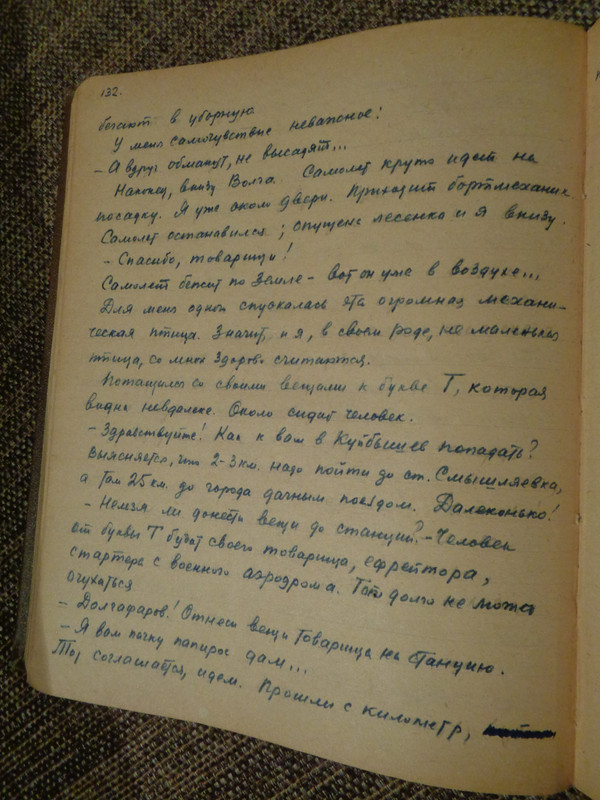 132.
бегают в уборную
У меня самочувствие неважное:
- А вдруг обманут, не высадят...
Наконец, внизу Волга. Самолет круто идет на
посадку. Я уже около двери. Приходит бортмеханик.
Самолет остановился; спущена лесенка и я внизу.
- Спасибо, товарищи!
Самолет бежит по земле - вот он уже в воздухе...
Для меня одной спускалась эта огромная механи-
ческая птица. Значит, и я, в своем роде, не маленькая
птица, со мной здорово считаются.
Потащился со своими вещами к букве Т, которая
видна невдалеке. Около сидит человек.
- Здравствуйте! Как к вам в Куйбышев попадать?
Выясняется, что 2-3 км. надо пойти до ст. Смышляевка,
а там 25 км. до города дачным поездом. Далеконько!
- Нельзя ли донести вещи до станции? - Человек
от буквы Т будит своего товарища, ефрейтора,
стартера с военного аэродрома. Тот долго не может
очухаться
- Долгафаров! Отнеси вещи товарища на станцию.
- Я вам пачку папирос дам...
Тот соглашается, идем. Прошли с километр,